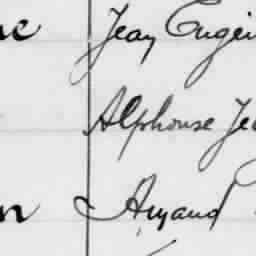 Jean Eugèn
Alphonse Je
n Armand